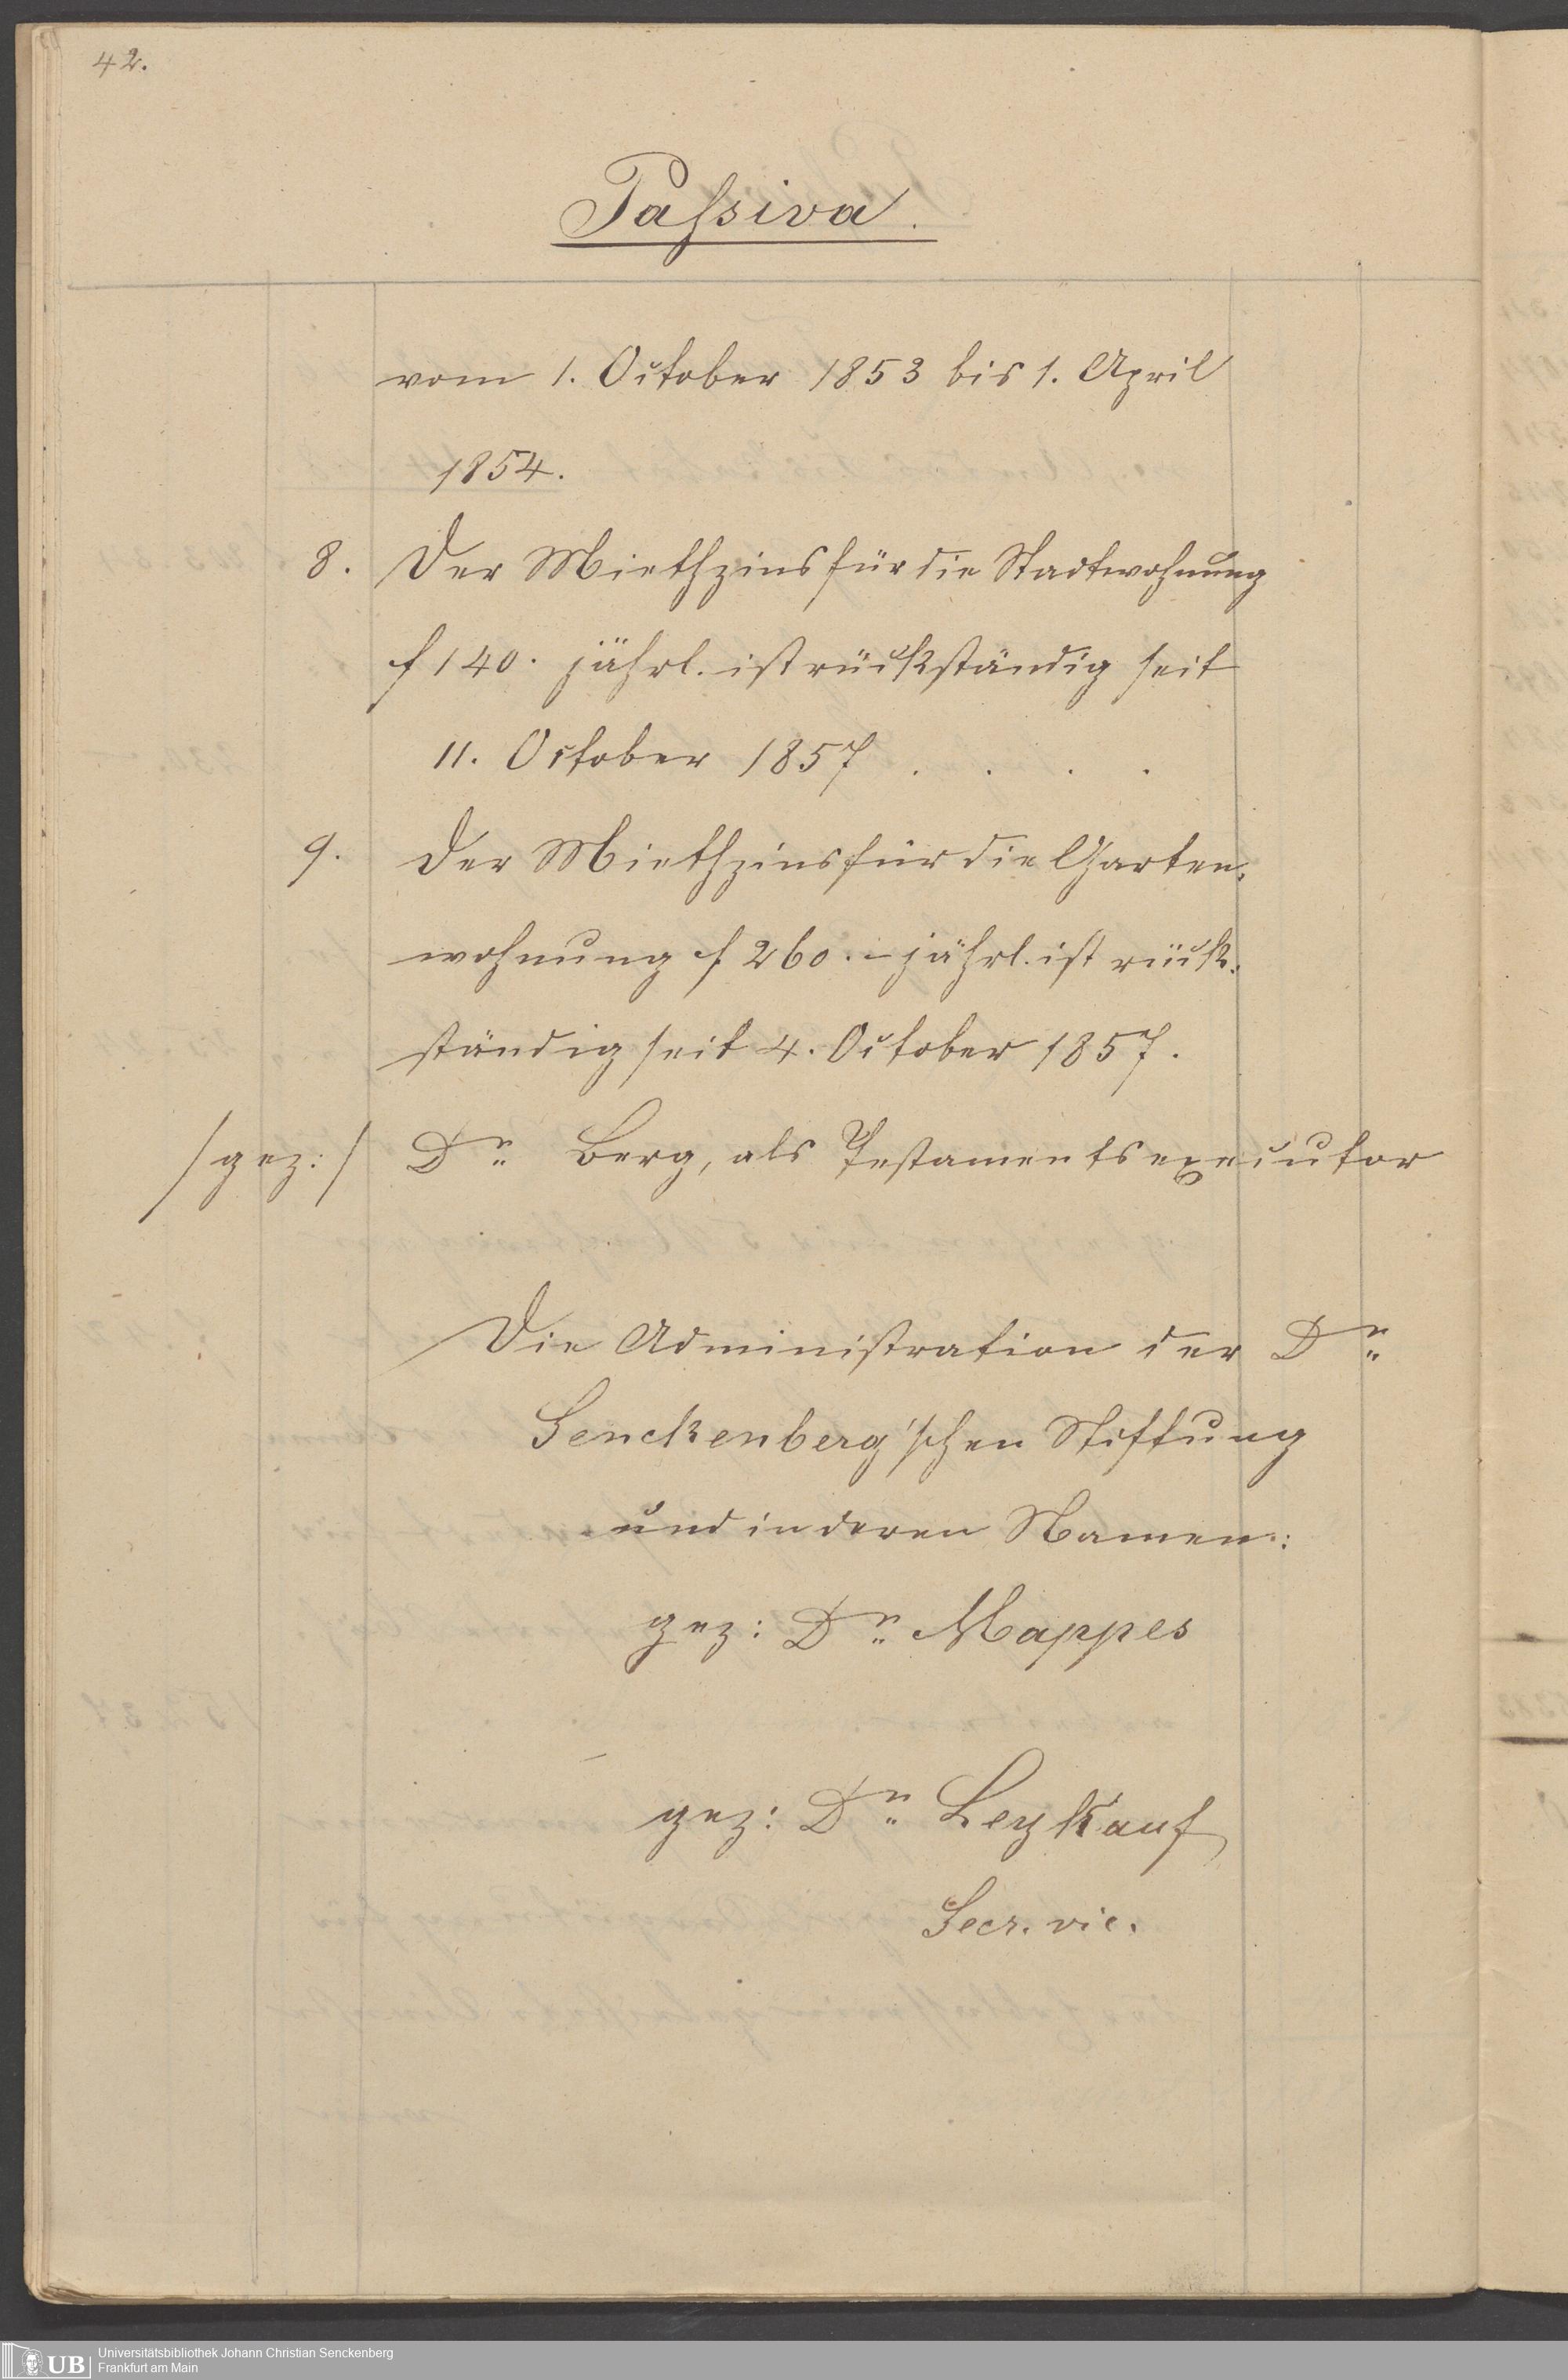 42.
Passiva.
vom 1. October 1853 bis 1. April
1854.
8. Der Miethzins für die Stadtwohnung
f 140. jährl. ist rückständig seit
11. October 1857 . . . .
9. Der Miethzins für die Garten-
wohnung f 260.- jährl. ist rück-
ständig seit 4. October 1857.
/gez:/ Dr. Berg, als Testamentsexecutor
Die Administration der Dr.
Senckenberg'schen Stiftung
und in deren Namen:
gez: Dr. Mappes
gez: Dr. Leykauf
Secr. vic.
UB
Universitätsbibliothek Johann Christian Senckenberg
Frankfurt am Main